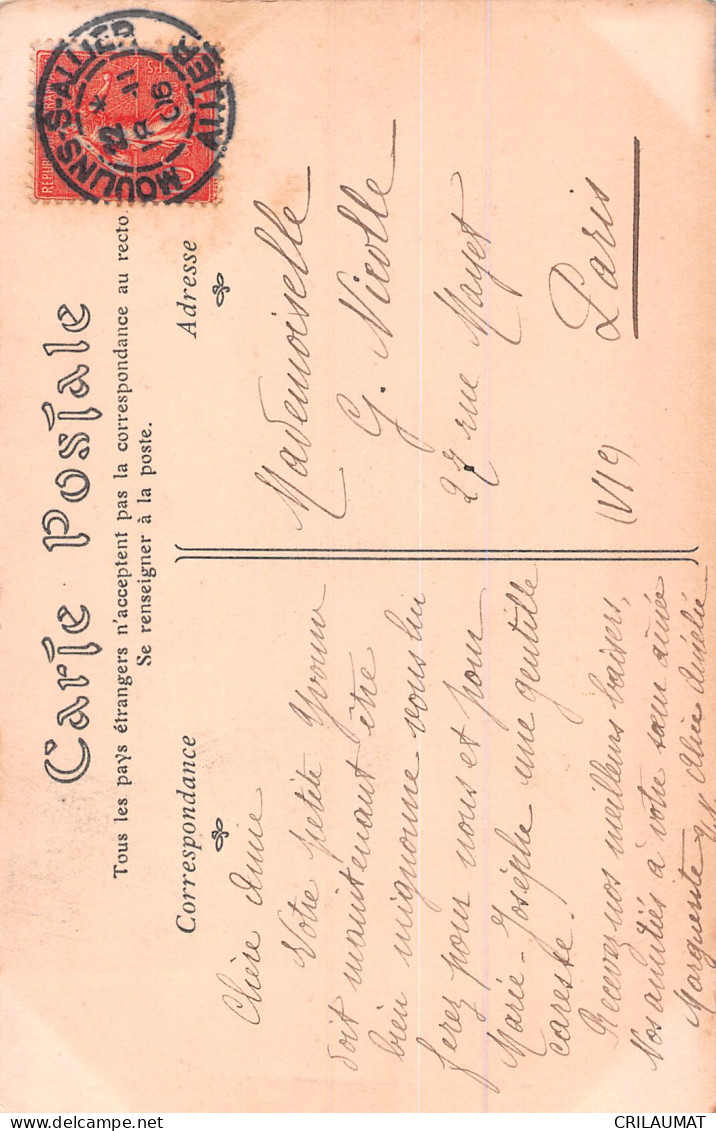 Carte Postale
Tous les pays étrangers n'acceptent pas la correspondance au recto.
Se renseigner à la poste.
Correspondance
Chère Amie
Votre petite Yvonne
doit maintenant être
bien mignonne vous lui
ferez pour nous et pour
Marie-Josèphe une gentille
careste.
Recevez nos meilleurs baisers,
Nos amitiés à votre sœur aînée
Marguerite Alice Amélie
Adresse
Mademoiselle
G. Nicolle
27 rue Mayet
Paris
(VIe)
MOULINS-S-ALLIER
ALLIER
REPUB
CRILAUMAT